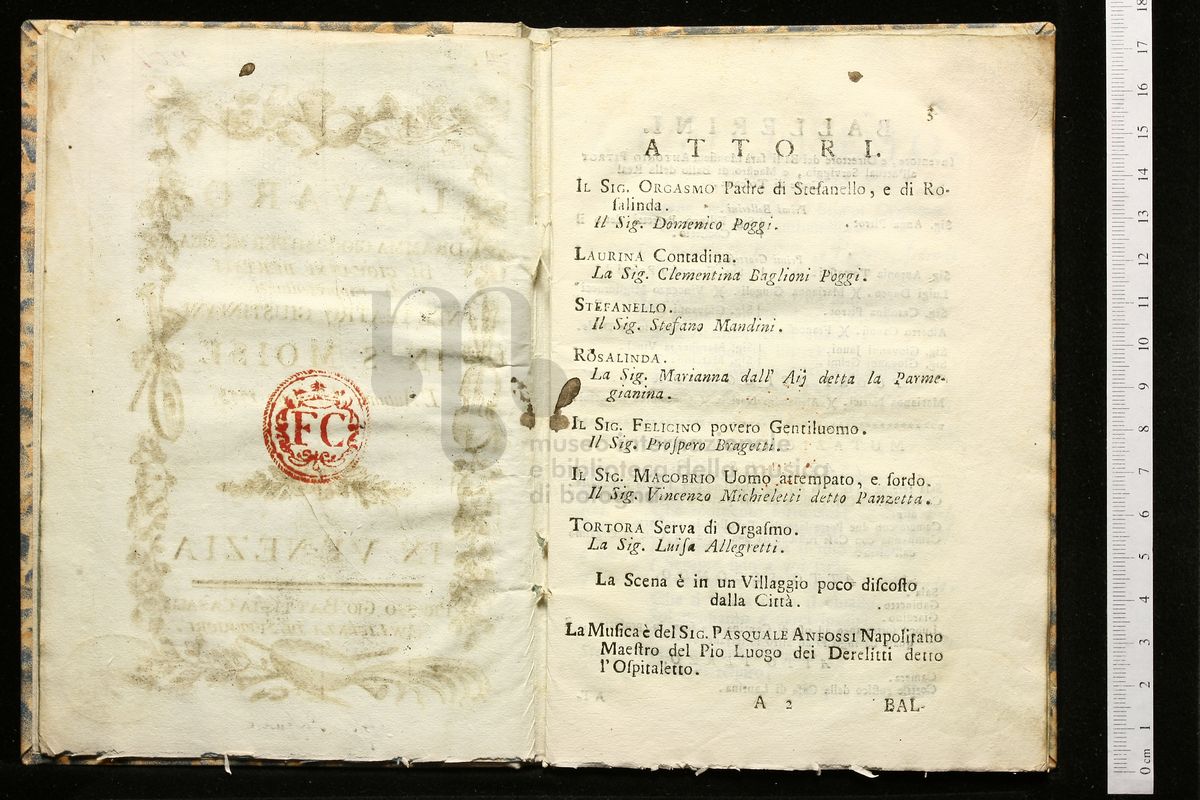 FC
3
ATTORI.
IL SIG. ORGASMO Padre di Stefanello, e di Ro-
ſalinda.
Il Sig. Domenico Poggi.
LAURINA Contadina.
La Sig. Clementina Baglioni Poggi.
STEFANELLO.
Il Sig. Stefano Mandini.
ROSALINDA.
La Sig. Marianna dall' Aij detta la Parme-
gianina.
IL SIG. FELICINO povero Gentiluomo.
Il Sig. Proſpero Bragetti.
IL SIG. MACOBRIO Uomo attempato, e ſordo.
Il Sig. Vincenzo Michieletti detto Panzetta.
TORTORA Serva di Orgaſmo.
La Sig. Luiſa Allegretti.
La Scena è in un Villaggio poco diſcoſto
dalla Città.
La Muſica è del SIG. PASQUALE ANFOSSI Napolitano
Maeſtro del Pio Luogo dei Derelitti detto
l'Oſpitaletto.
A 2 BAL-
museo internazionale
e biblioteca della musica
di bologna
0 cm 1 2 3 4 5 6 7 8 9 10 11 12 13 14 15 16 17 18